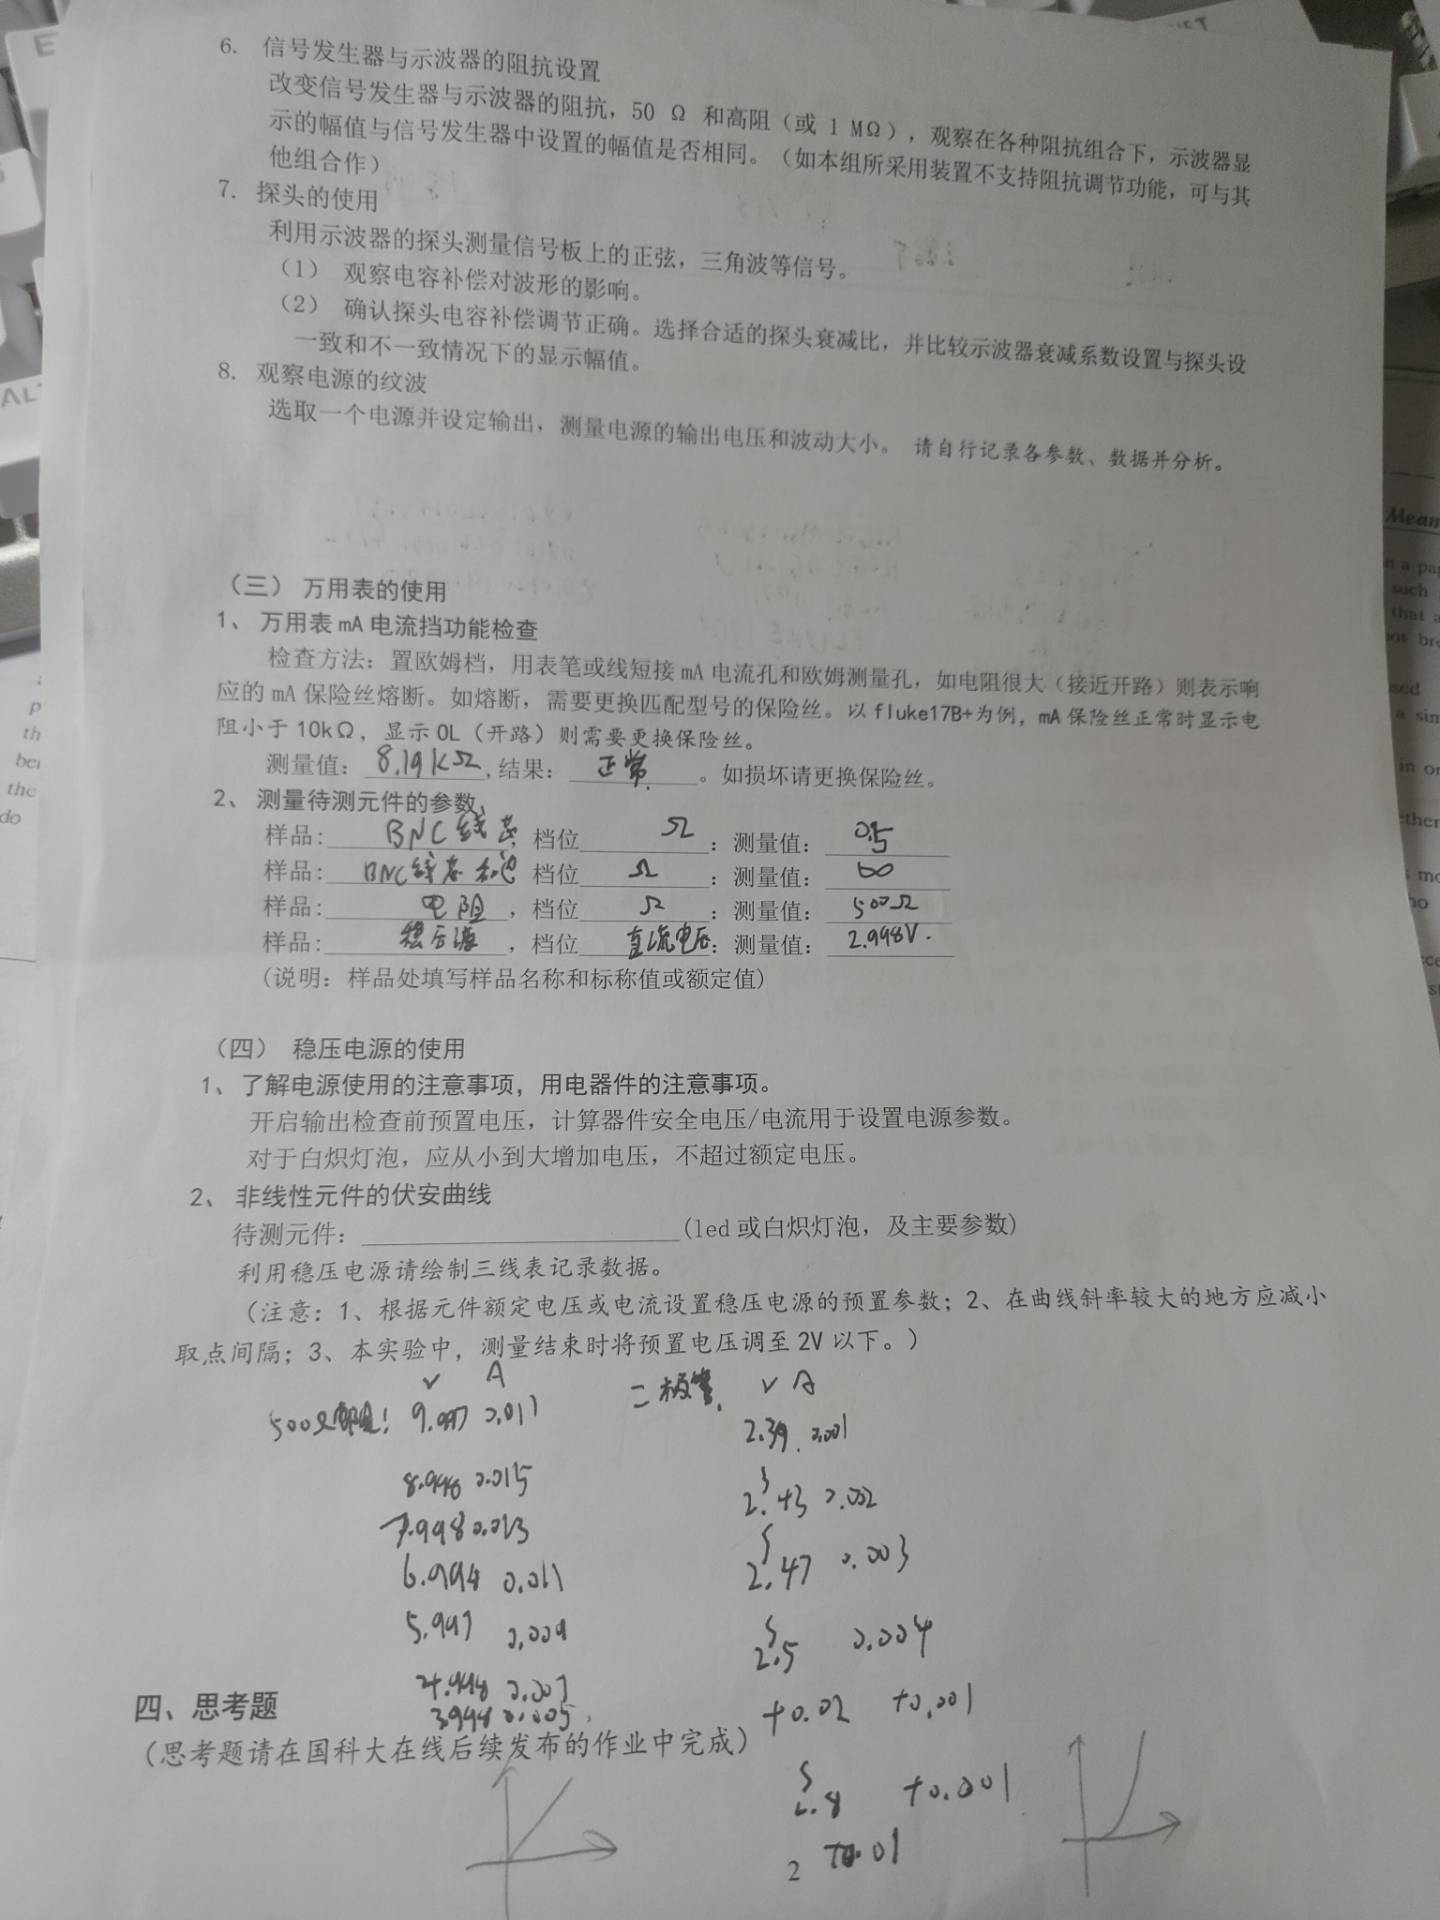 6. 信号发生器与示波器的阻抗设置
改变信号发生器与示波器的阻抗，50 Ω 和高阻（或 1 MΩ），观察在各种阻抗组合下，示波器显
示的幅值与信号发生器中设置的幅值是否相同。（如本组所采用装置不支持阻抗调节功能，可与其
他组合作）
7. 探头的使用
利用示波器的探头测量信号板上的正弦，三角波等信号。
（1） 观察电容补偿对波形的影响。
（2） 确认探头电容补偿调节正确。选择合适的探头衰减比，并比较示波器衰减系数设置与探头设
一致和不一致情况下的显示幅值。
8. 观察电源的纹波
选取一个电源并设定输出，测量电源的输出电压和波动大小。 请自行记录各参数、数据并分析。
（三） 万用表的使用
1、 万用表 mA 电流挡功能检查
检查方法：置欧姆档，用表笔或线短接 mA 电流孔和欧姆测量孔，如电阻很大（接近开路）则表示响
应的 mA 保险丝熔断。如熔断，需要更换匹配型号的保险丝。以 fluke17B+为例，mA 保险丝正常时显示电
阻小于 10kΩ，显示 OL（开路）则需要更换保险丝。
测量值：8.19kΩ,结果：正常。如损坏请更换保险丝。
2、 测量待测元件的参数
样品:BNC线芯 档位Ω：测量值：0.5
样品:BNC线芯和 档位Ω：测量值：∞
样品:电阻，档位Ω：测量值：500Ω
样品:稳压源，档位直流电压：测量值：2.998V.
(说明：样品处填写样品名称和标称值或额定值)
（四） 稳压电源的使用
1、了解电源使用的注意事项，用电器件的注意事项。
开启输出检查前预置电压，计算器件安全电压/电流用于设置电源参数。
对于白炽灯泡，应从小到大增加电压，不超过额定电压。
2、 非线性元件的伏安曲线
待测元件：(led 或白炽灯泡，及主要参数)
利用稳压电源请绘制三线表记录数据。
（注意：1、根据元件额定电压或电流设置稳压电源的预置参数；2、在曲线斜率较大的地方应减小
取点间隔；3、本实验中，测量结束时将预置电压调至 2V 以下。）
V A 二极管 V A
500Ω电阻: 9.997 0.017 2.39 0.001
8.998 0.015 2.43 0.002
7.998 0.013
6.998 0.011 2.47 0.003
5.997 0.009 2.5 0.004
4.998 0.007
3.998 0.005 +0.02 +0.001
四、思考题
（思考题请在国科大在线后续发布的作业中完成）
2.8 +0.001
2 +0.01